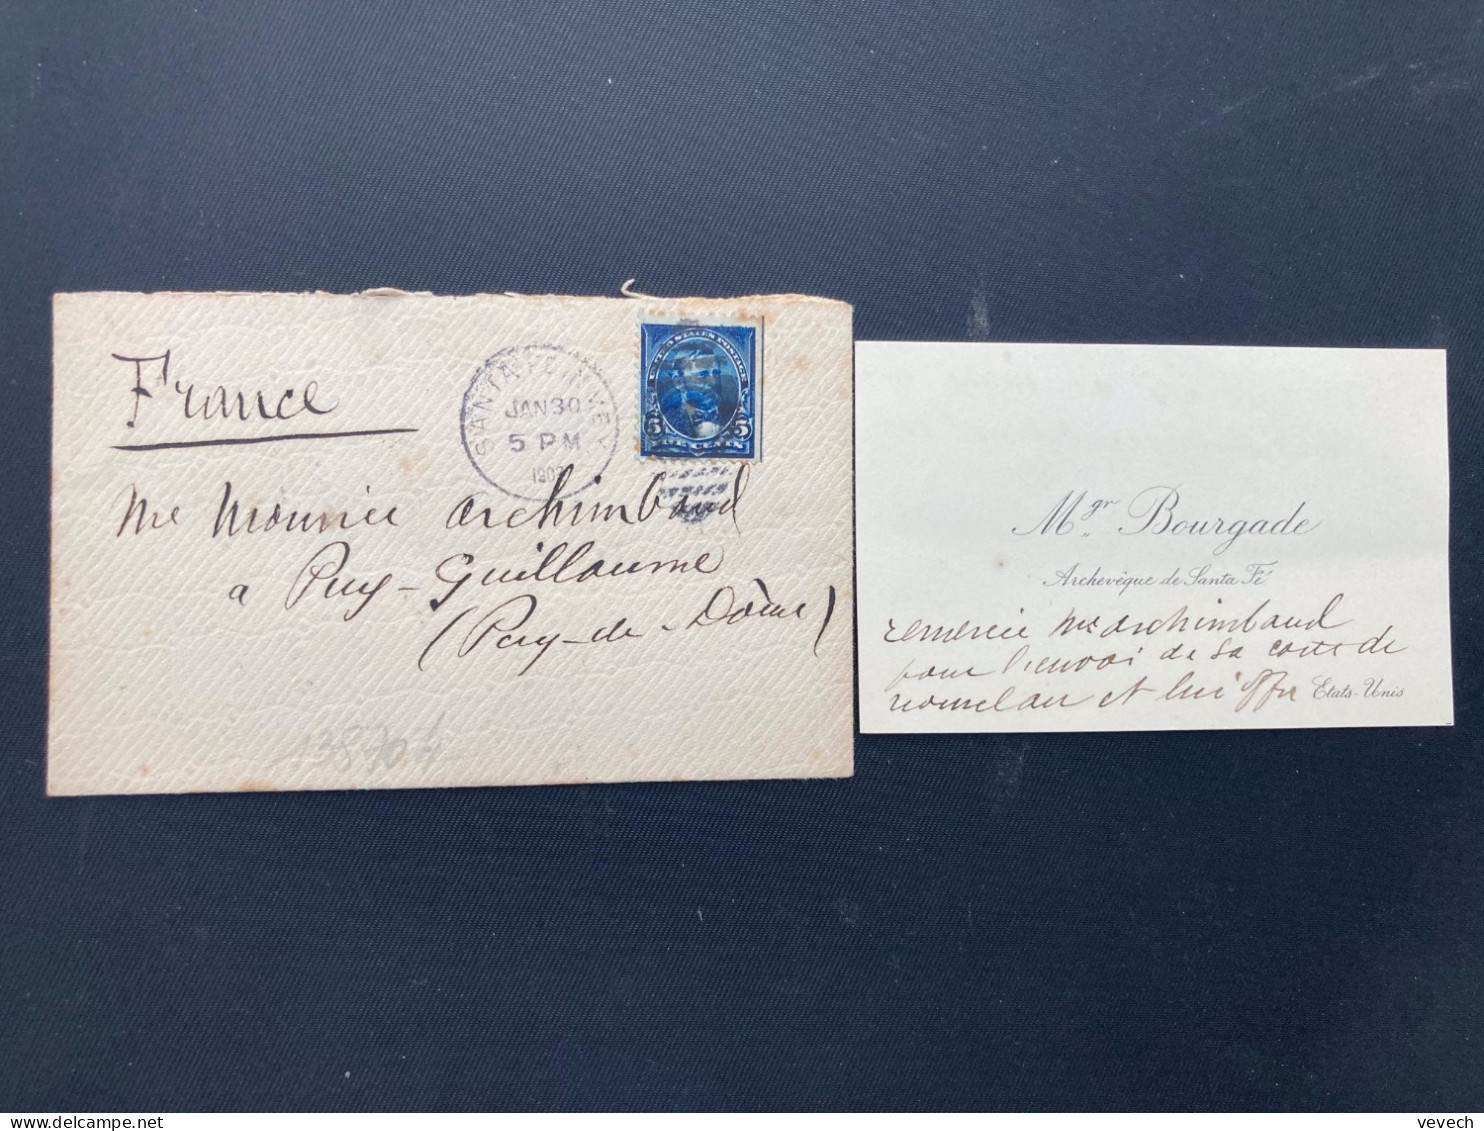 France
SANTA FE, N. MEX.
JAN 30
5 PM
UNITED STATES POSTAGE
5 5
FIVE CENTS
Me Mounier Archimbaud
a Puy-Guillaume
(Puy-de-Dôme)
13870
Mgr Bourgade
Archevêque de Santa Fé
remercie Me archimbaud
pour l'envoi de sa carte de
nouvel an et lui offre
Etats-Unis
vevech